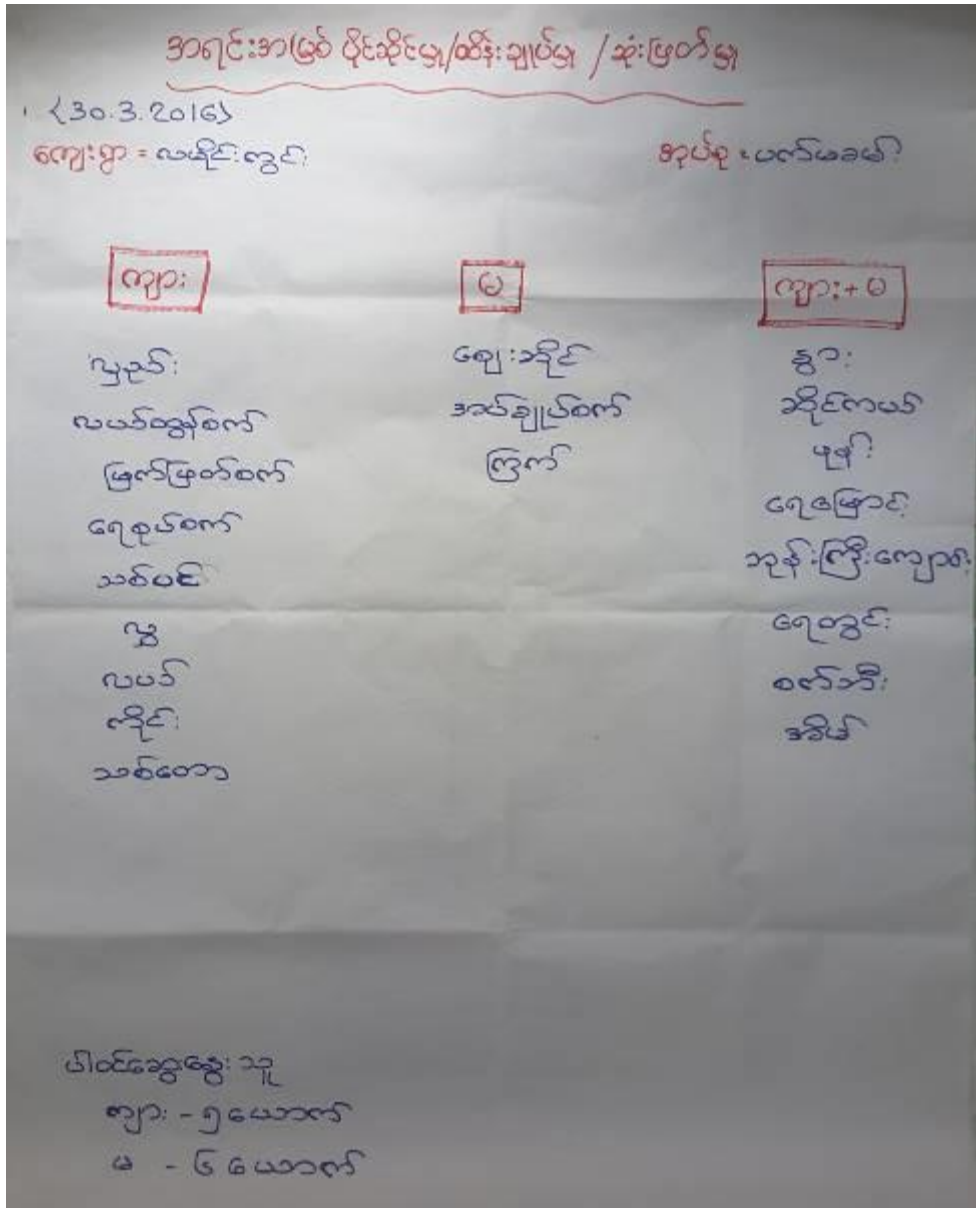 အရင်းအမြစ် ပိုင်ဆိုင်မှု/ထိန်းချုပ်မှု /ဆုံးဖြတ်မှု
{30.3.2016}
ကျေးရွာ = လယိုင်းကွင်း
အုပ်စု = ပက်မခမ်း
ကျား
မ
ကျား + မ
လှည်း
လယ်ထွန်စက်
မြက်ဖြတ်စက်
ရေစုပ်စက်
သစ်ပင်
လွှ
လယ်
ကိုင်း
သစ်တော
ဈေးဆိုင်
အပ်ချုပ်စက်
ကြက်
နွား
ဆိုင်ကယ်
ဖုန်း
ရေမြောင်း
ဘုန်းကြီးကျောင်း
ရေတွင်း
စက်ဘီး
အိမ်
ပါဝင်ဆွေးနွေးသူ
ကျား - ၅ ယောက်
မ - ၆ ယောက်